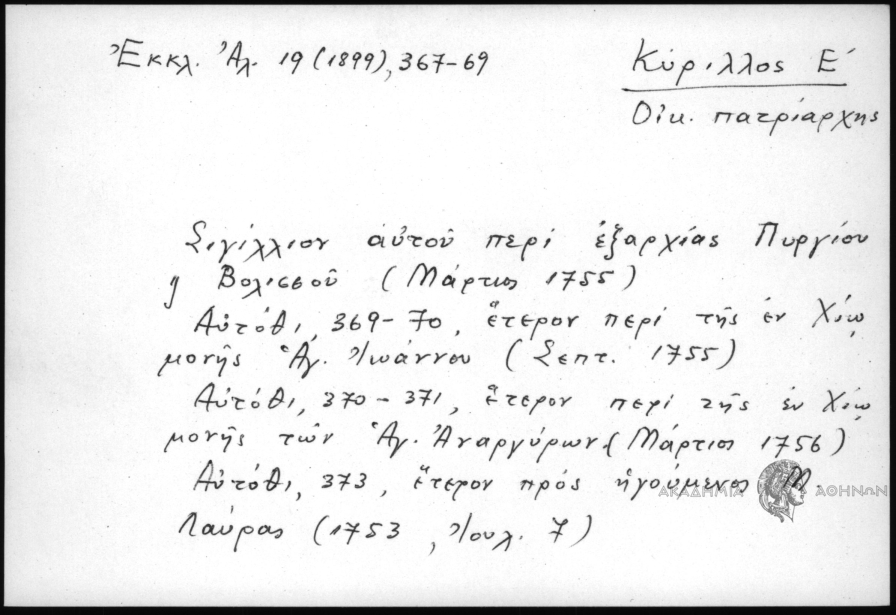 Ἐκκλ. Ἀλ. 19 (1899), 367-69
Κύριλλος Ε΄
Οἰκ. πατριάρχης
Σιγίλλιον αὐτοῦ περί ἐξαρχίας Πυργίου
ἤ Βολισσοῦ (Μάρτιος 1755)
Αὐτόθι, 369-70, ἕτερον περί τῆς ἐν Χίῳ
μονῆς Ἁγ. Ἰωάννου (Σεπτ. 1755)
Αὐτόθι, 370-371, ἕτερον περί τῆς ἐν Χίῳ
μονῆς τῶν Ἁγ. Ἀναργύρων (Μάρτιος 1756)
Αὐτόθι, 373, ἕτερον πρός ἡγούμενος Μ.
ΑΚΑΔΗΜΙΑ ΑΘΗΝΩΝ
Λαύρας (1753, Ἰουλ. 7)